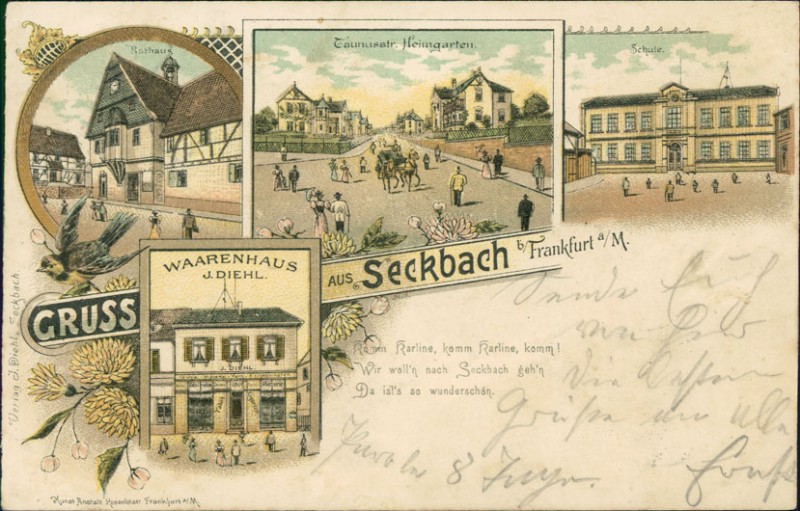 Rathaus
Taunusstr. Heimgarten.
Schule.
WAARENHAUS
J. DIEHL.
GRUSS AUS Seckbach b/Frankfurt a/M.
J. DIEHL
Komm Karline, komm Karline, komm!
Wir woll'n nach Seckbach geh'n
Da ist's so wunderschön.
Sende Euch
von hier
die besten
Grüße an alle
Ernst
Parole 8
Verlag J. Diehl, Seckbach
Kunst Anstalt Frankfurt a/M.